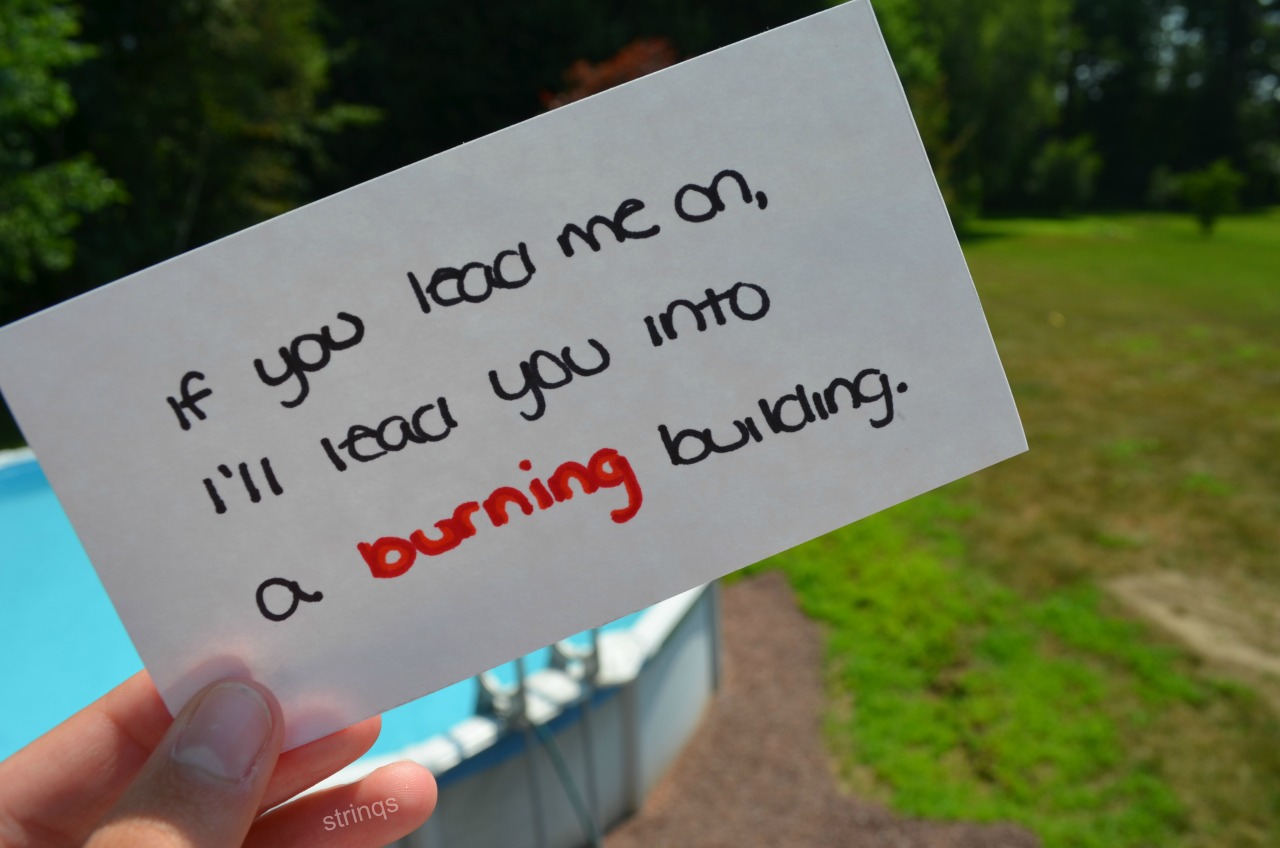 If you lead me on,
I'll lead you into
a burning building.
strinqs